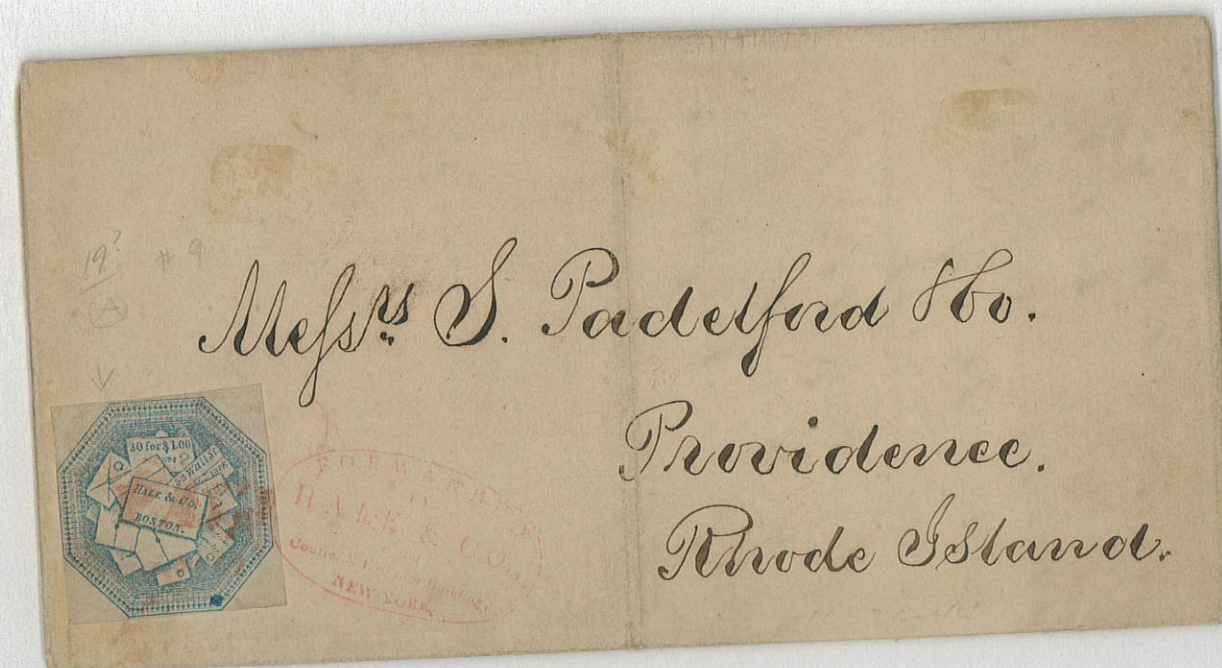 19?
# 9
A
Messrs S. Padelford & Co.
Providence.
Rhode Island.
20 for $1.00
HALE & CO.
BOSTON.
FORWARDED
HALE & CO.
NEW YORK.